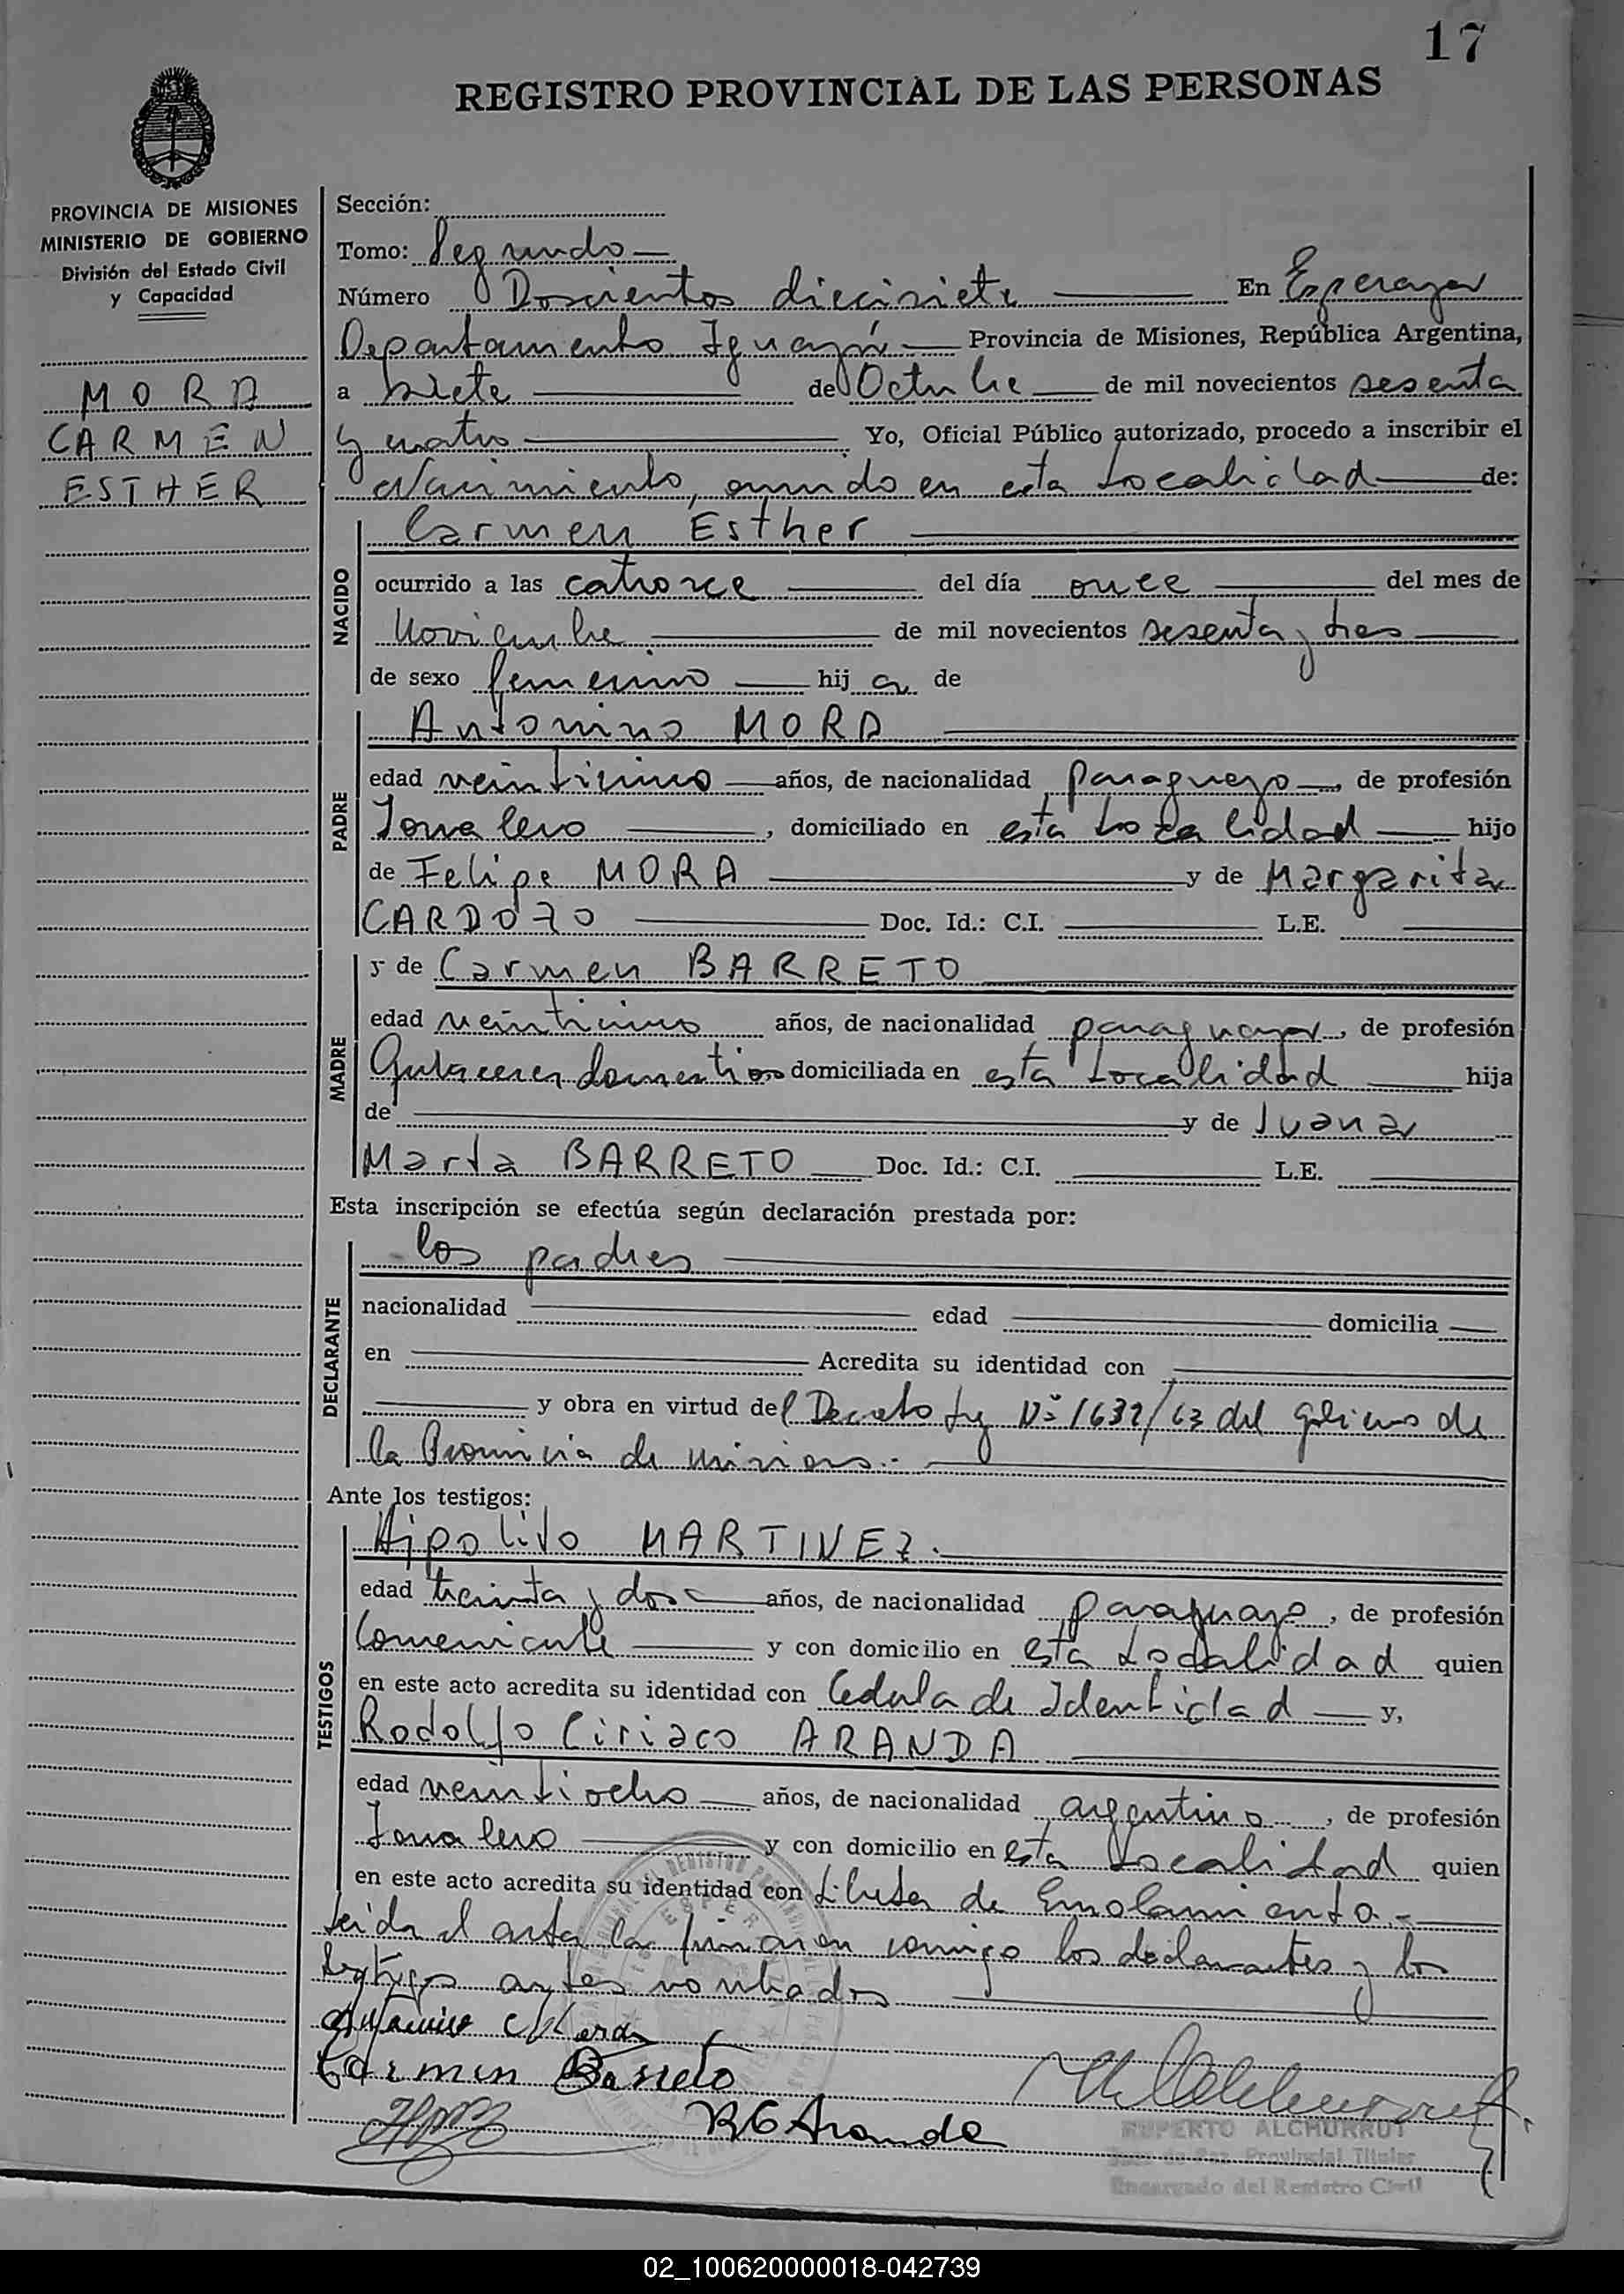 17
REGISTRO PROVINCIAL DE LAS PERSONAS
PROVINCIA DE MISIONES
MINISTERIO DE GOBIERNO
División del Estado Civil
y Capacidad
MORA
CARMEN
ESTHER
Sección:
Tomo: Segundo
Número Doscientos diecisiete En Esperanza
Departamento Iguazú Provincia de Misiones, República Argentina,
a siete de Octubre de mil novecientos sesenta
y cuatro Yo, Oficial Público autorizado, procedo a inscribir el
Nacimiento, ocurrido en esta Localidad de:
NACIDO
Carmen Esther
ocurrido a las catorce del día once del mes de
Noviembre de mil novecientos sesenta y tres
de sexo femenino hija de
PADRE
Antonino MORA
edad veinticinco años, de nacionalidad paraguayo, de profesión
Jornalero, domiciliado en esta Localidad hijo
de Felipe MORA y de Margarita
CARDOZO Doc. Id.: C.I. L.E.
MADRE
y de Carmen BARRETO
edad veinticinco años, de nacionalidad paraguaya, de profesión
Quehaceres domesticos domiciliada en esta Localidad hija
de y de Juana
Marta BARRETO Doc. Id.: C.I. L.E.
Esta inscripción se efectúa según declaración prestada por:
DECLARANTE
los padres
nacionalidad edad domicilia
en Acredita su identidad con
y obra en virtud del Decreto Ley Nº 1632/63 del gobierno de
la Provincia de Misiones.-
Ante los testigos:
TESTIGOS
Hipolito MARTINEZ.
edad treinta y dos años, de nacionalidad paraguayo, de profesión
Comerciante y con domicilio en esta Localidad quien
en este acto acredita su identidad con Cedula de Identidad y,
Rodolfo Ciriaco ARANDA
edad veintiocho años, de nacionalidad argentino, de profesión
Jornalero y con domicilio en esta Localidad quien
en este acto acredita su identidad con Libreta de Enrolamiento.-
Leida el acta la firmaron conmigo los declarantes y los
testigos antes nombrados
Carmen Barreto
RC Aranda
RUPERTO ALCHURRUT
Juez de Paz Provincial Titular
Encargado del Registro Civil
02_100620000018-042739